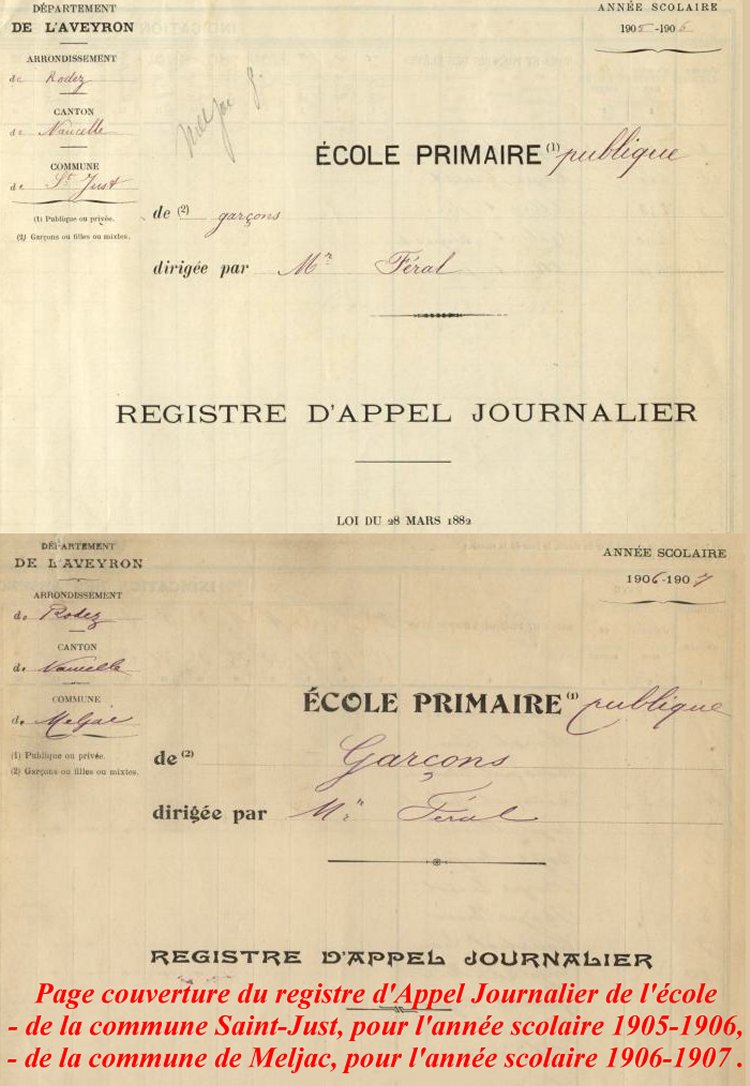 DÉPARTEMENT
DE L'AVEYRON
ARRONDISSEMENT
de Rodez
CANTON
de Naucelle
COMMUNE
de St Just
(1) Publique ou privée.
(2) Garçons ou filles ou mixtes.
ANNÉE SCOLAIRE
1905-1906
Meljac g.
ÉCOLE PRIMAIRE (1) publique
de (2) garçons
dirigée par Mr Féral
REGISTRE D'APPEL JOURNALIER
LOI DU 28 MARS 1882
DÉPARTEMENT
DE L'AVEYRON
ARRONDISSEMENT
de Rodez
CANTON
de Naucelle
COMMUNE
de Meljac
(1) Publique ou privée.
(2) Garçons ou filles ou mixtes.
ANNÉE SCOLAIRE
1906-1907
ÉCOLE PRIMAIRE (1) publique
de (2) Garçons
dirigée par Mr Féral
REGISTRE D'APPEL JOURNALIER
Page couverture du registre d'Appel Journalier de l'école
- de la commune Saint-Just, pour l'année scolaire 1905-1906,
- de la commune de Meljac, pour l'année scolaire 1906-1907 .